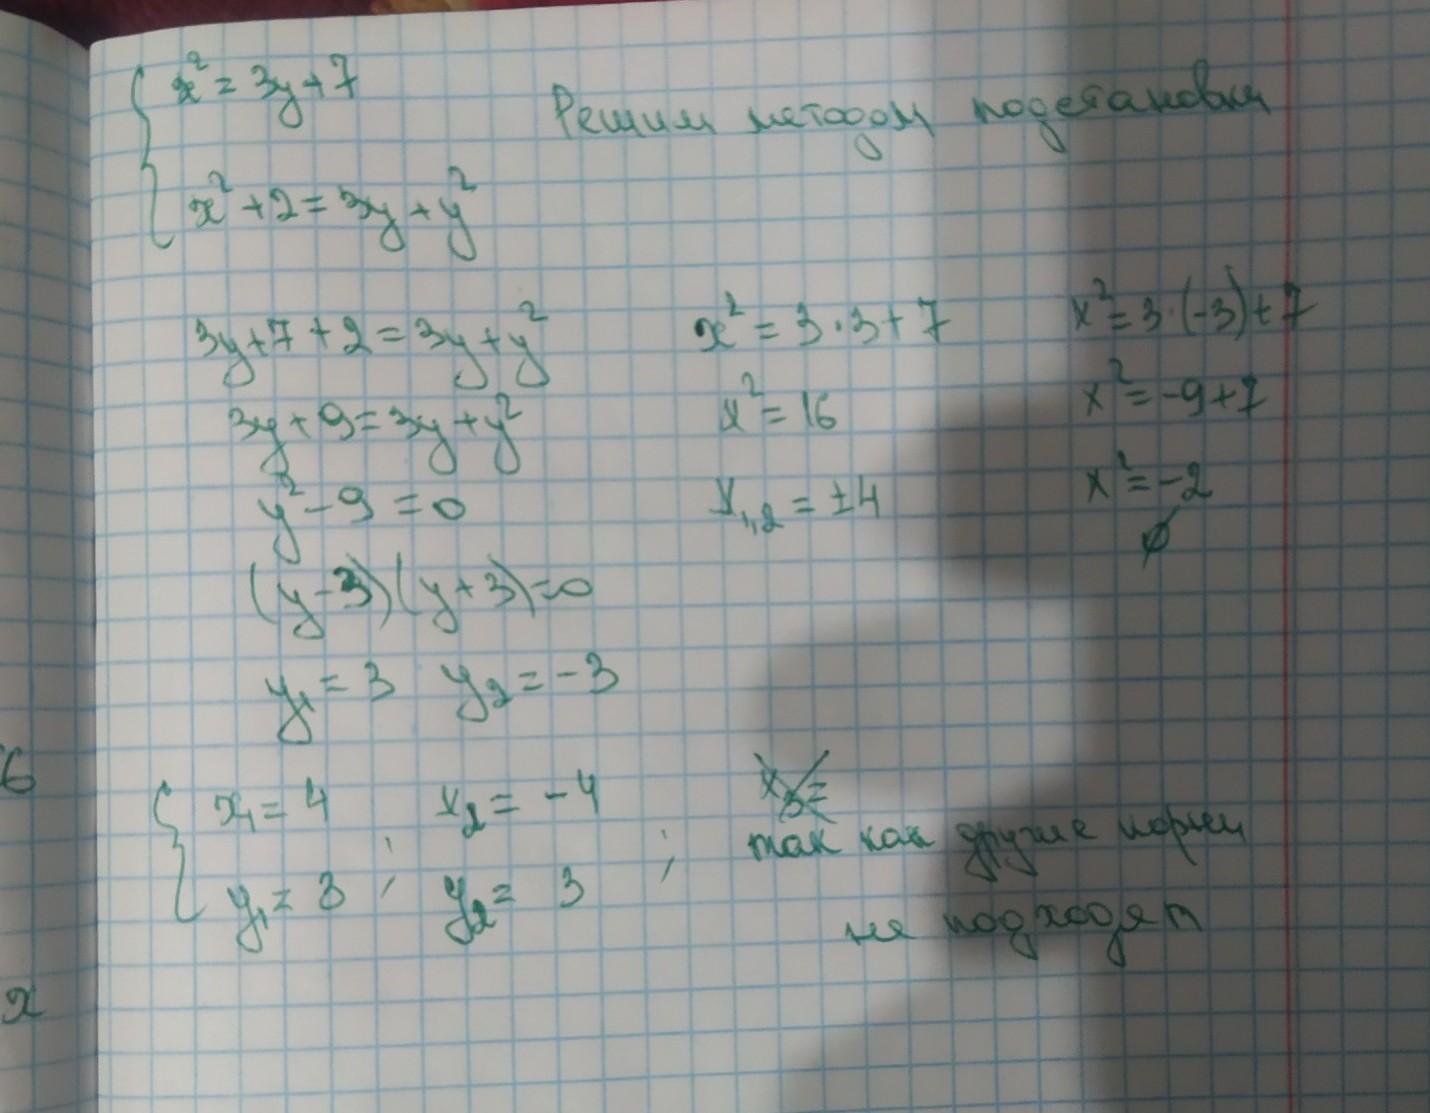 x² = 3y + 7
Решим методом подстановки
x² + 2 = 3y + y²
3y + 7 + 2 = 3y + y²
3y + 9 = 3y + y²
y² - 9 = 0
(y - 3)(y + 3) = 0
y₁ = 3 y₂ = -3
x² = 3 · 3 + 7
x² = 16
x₁,₂ = ±4
x² = 3 · (-3) + 7
x² = -9 + 7
x² = -2
∅
x₁ = 4 x₂ = -4
y₁ = 3 ; y₂ = 3 ;
x₃ =
так как другие корни
не подходят
6
x